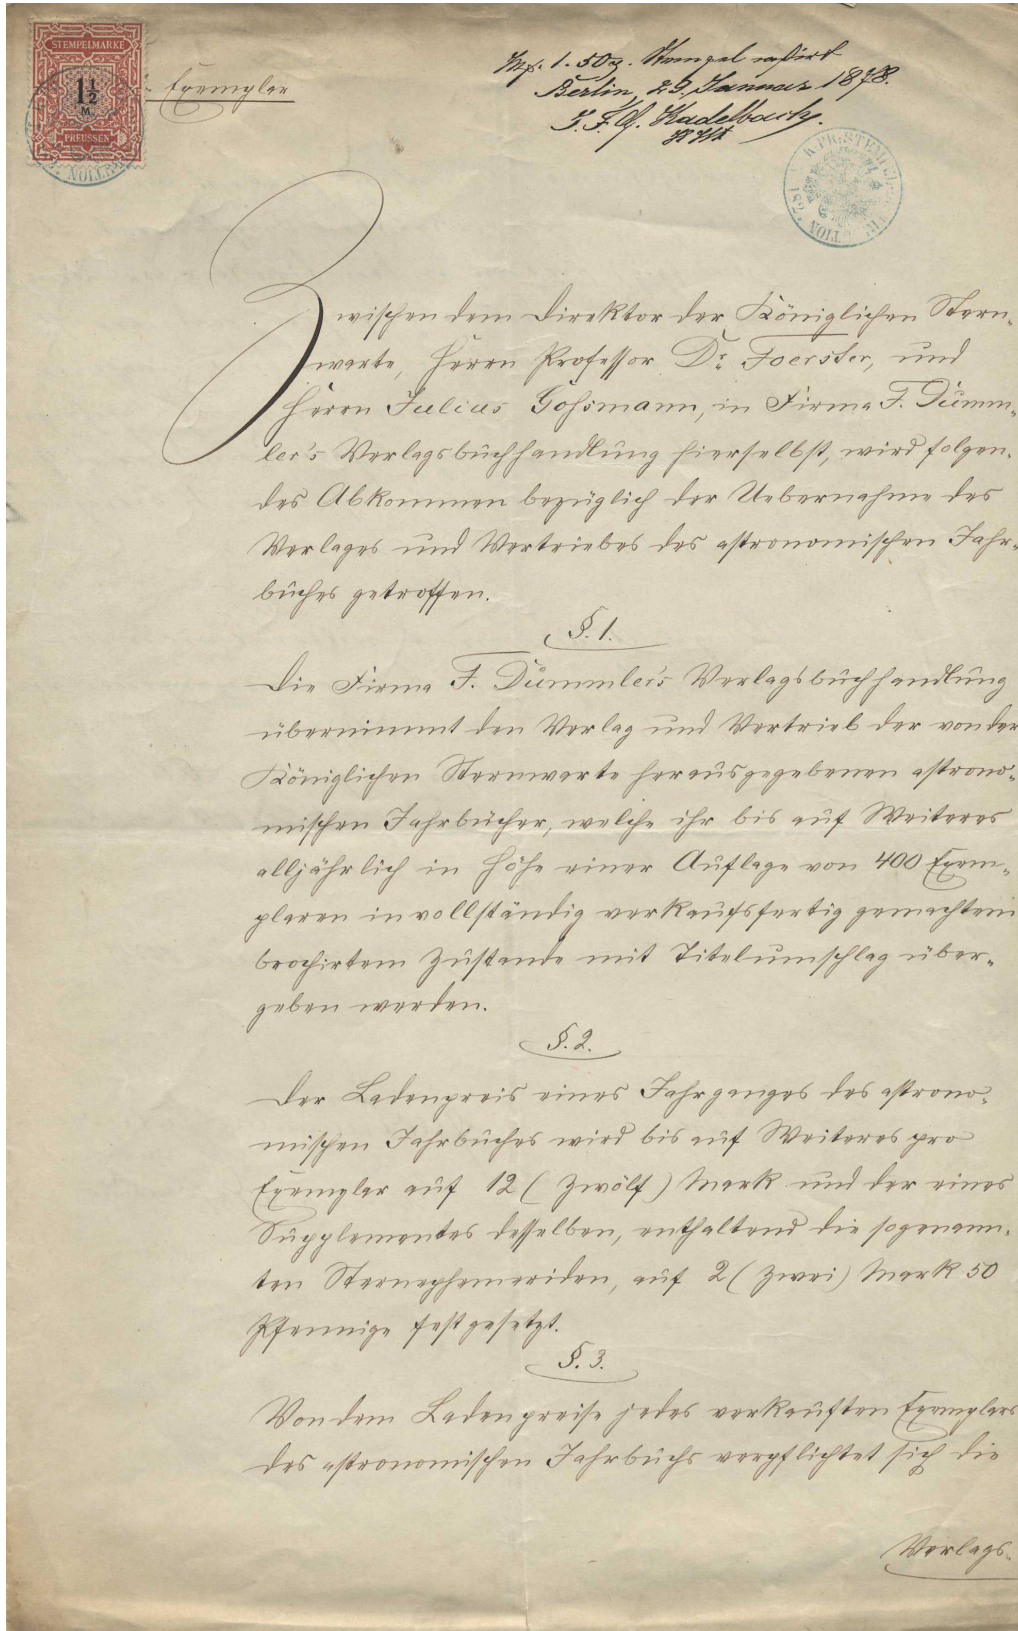 STEMPELMARKE
1½
M.
PREUSSEN
Exemplar
Mk. 1. 50 Stempel cassirt
Berlin, 29. Januar 1878.
Kadelbach
Zwischen dem Direktor der Königlichen Stern-
warte, Herrn Professor Dr. Foerster, und
Herrn Julius Goßmann, in Firma F. Dümm-
ler's Verlagsbuchhandlung hierselbst, wird folgen-
des Abkommen bezüglich der Uebernahme des
Verlages und Vertriebes des astronomischen Jahr-
buches getroffen.
§. 1.
Die Firma F. Dümmler's Verlagsbuchhandlung
übernimmt den Verlag und Vertrieb der von der
Königlichen Sternwarte herausgegebenen astrono-
mischen Jahrbücher, welche ihr bis auf Weiteres
alljährlich in Höhe einer Auflage von 400 Exem-
plaren in vollständig verkaufsfertig gemachtem
brochirtem Zustande mit Titelumschlag über-
geben werden.
§. 2.
Der Ladenpreis eines Jahrganges des astrono-
mischen Jahrbuches wird bis auf Weiteres pro
Exemplar auf 12 (zwölf) Mark und der eines
Supplementes desselben, enthaltend die sogenann-
ten Sternephemeriden, auf 2 (zwei) Mark 50
Pfennige festgesetzt.
§. 3.
Von dem Ladenpreise jedes verkauften Exemplars
des astronomischen Jahrbuchs verpflichtet sich die
Verlags-